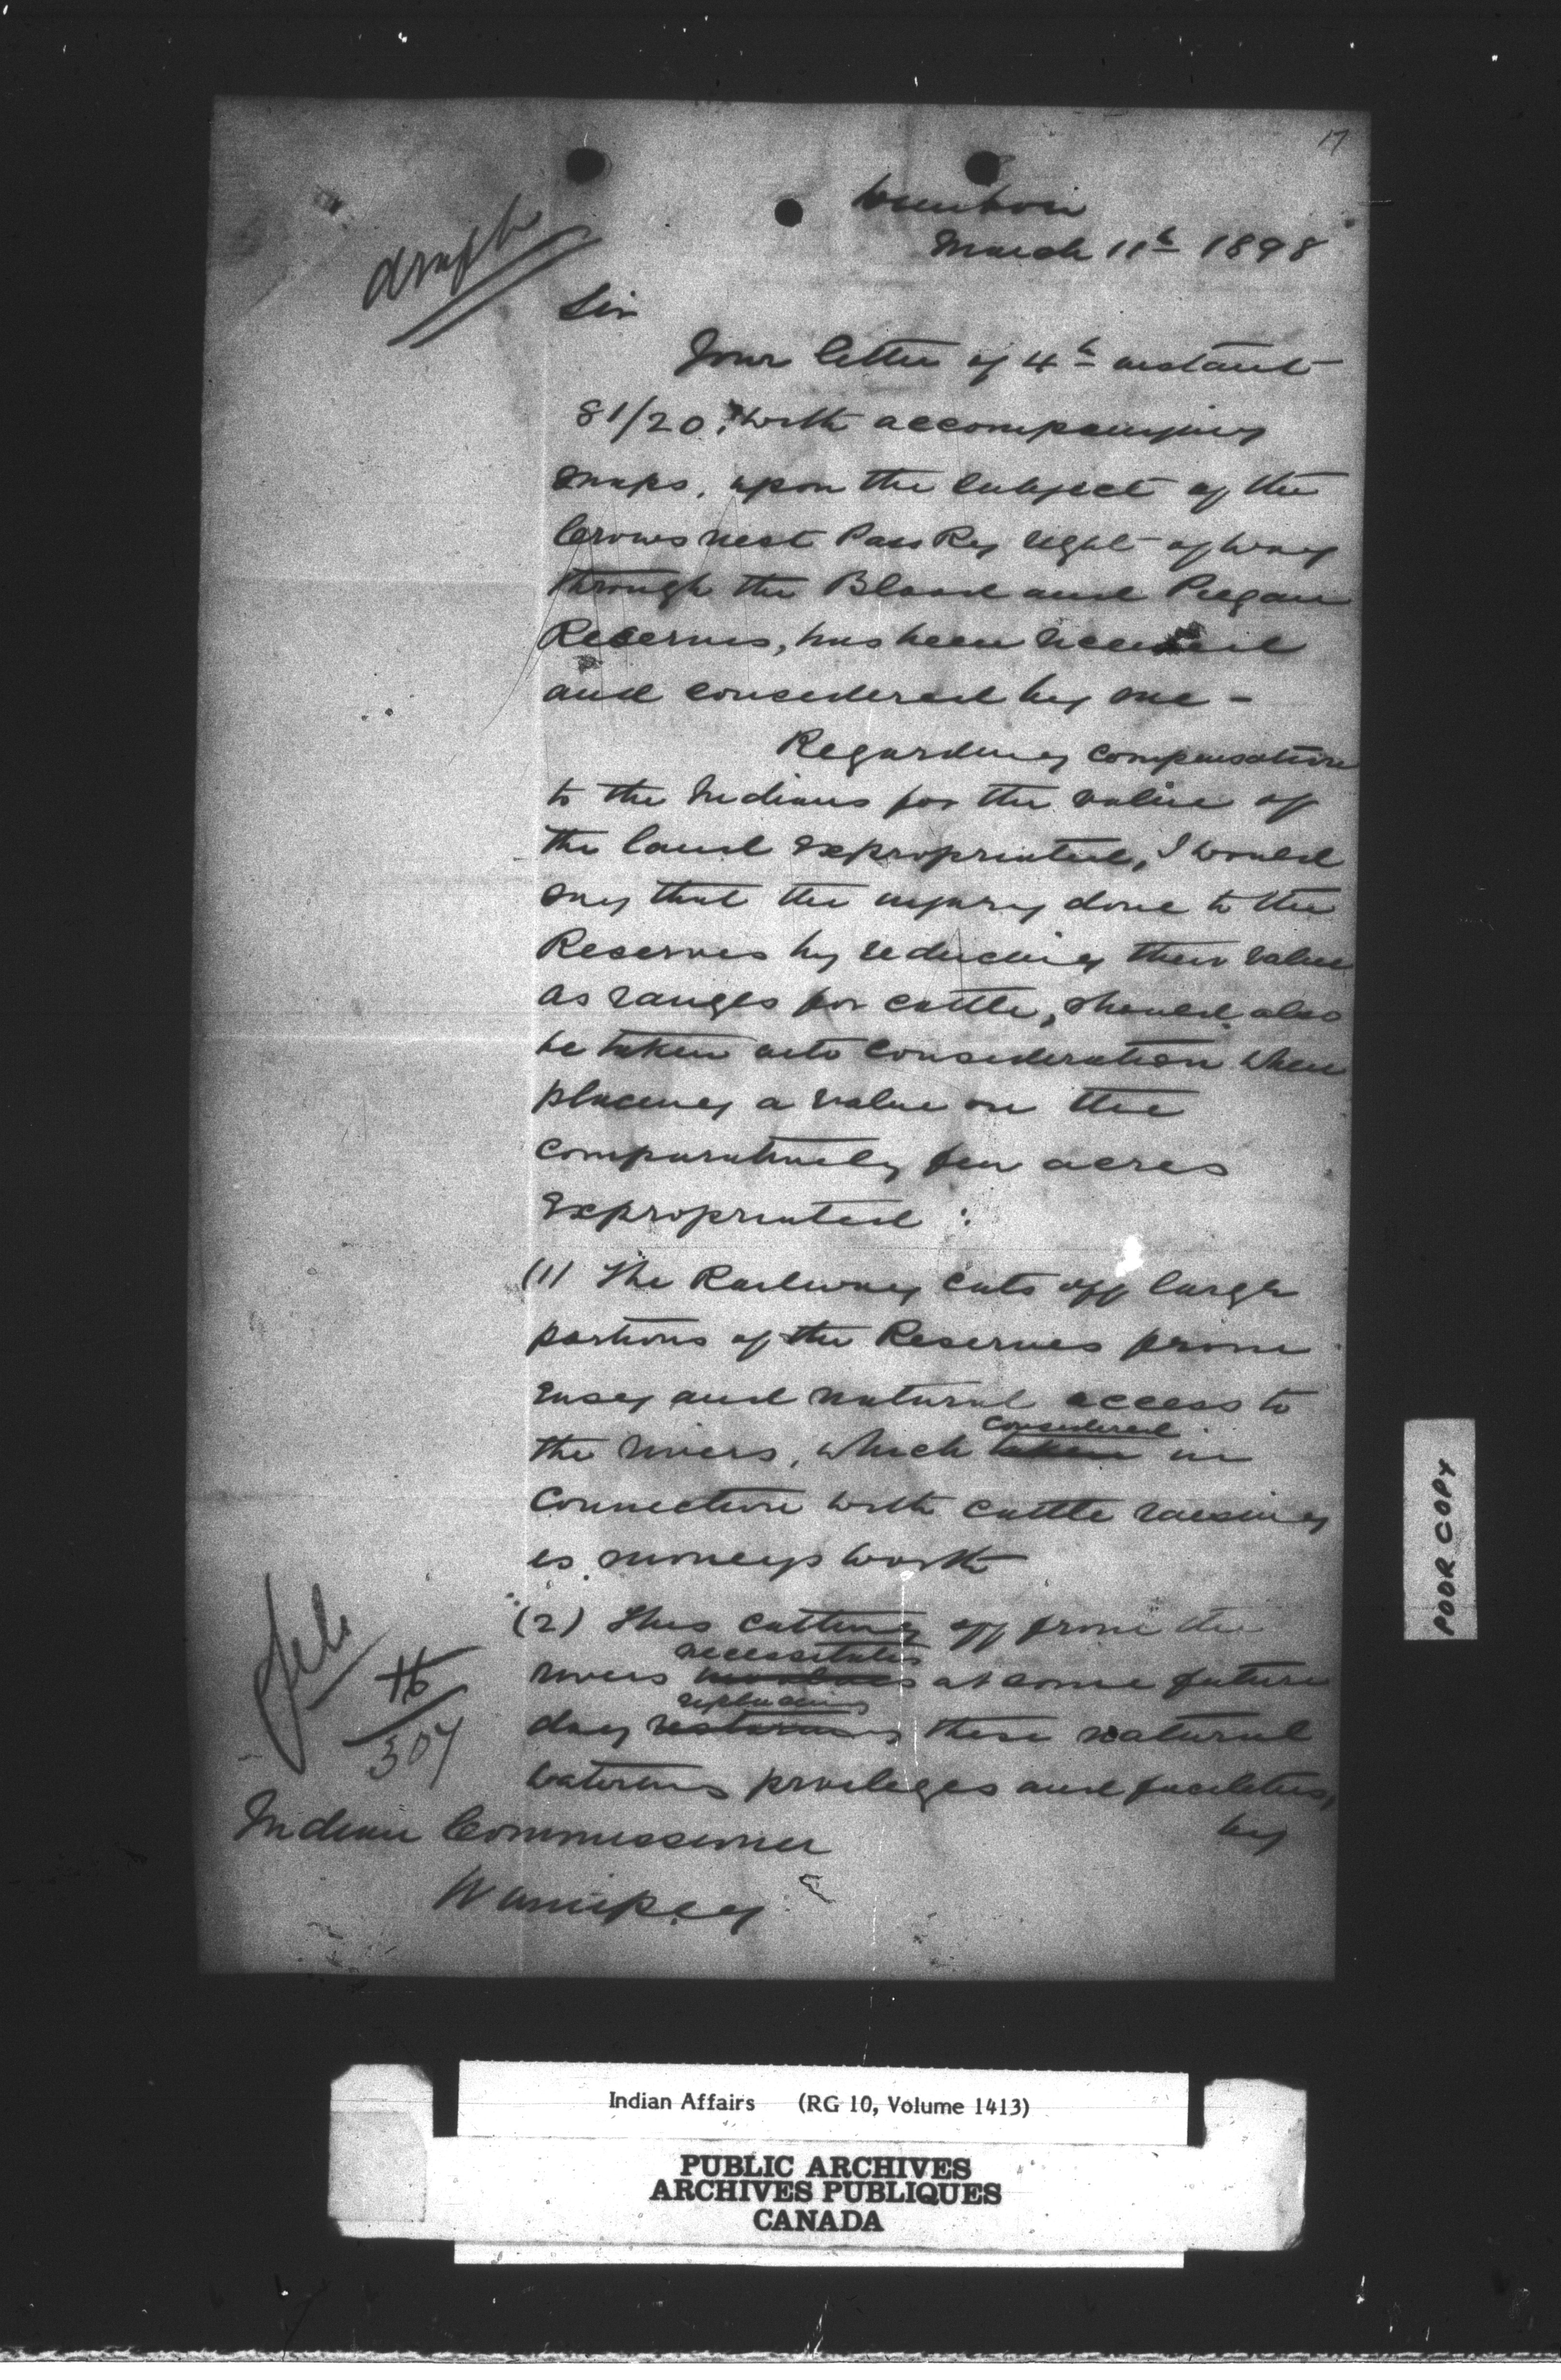 17
draft
March 11th 1898
Sir
Your letter of 4th instant
81/20, with accompanying
maps, upon the subject of the
Crows nest Pass Ry right of way
through the Blood and Peigan
Reserves, has been received
and considered by me -
Regarding compensation
to the Indians for the value of
the land expropriated, I would
say that the injury done to the
Reserves by reducing their value
as ranges for cattle, should also
be taken into consideration when
placing a value on the
comparatively few acres
expropriated :
(1) The Railway cuts off large
portions of the Reserves from
easy and natural access to
considered
the rivers, which taken in
connection with cattle raising
is moneys worth
(2) This cutting off from the
necessitates
rivers involves at some future
replacing
day restoring these natural
watering privileges and facilities,
by
File
16
304
Indian Commissioner
Winnipeg
POOR COPY
Indian Affairs (RG 10, Volume 1413)
PUBLIC ARCHIVES
ARCHIVES PUBLIQUES
CANADA